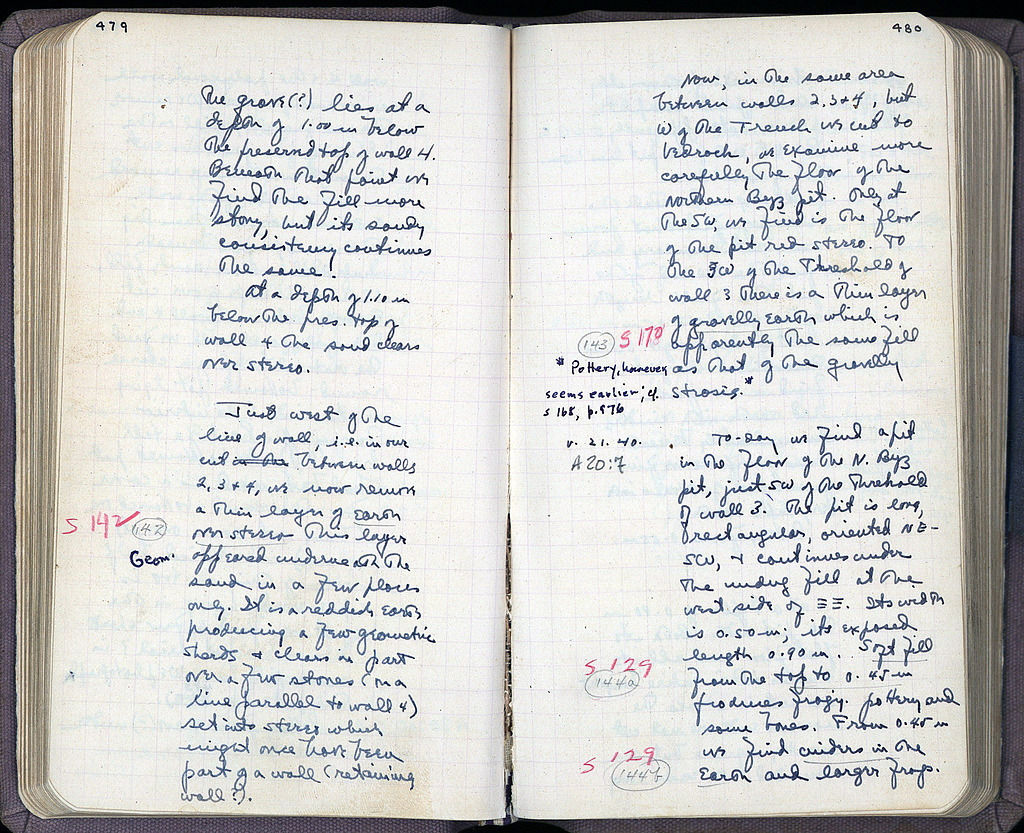 479
The grave(?) lies at a
depth of 1.00 m below
the preserved top of wall 4.
Beneath that point we
find the fill more
stony, but its sandy
consistency continues
the same!
At a depth of 1.10 m
below the pres. top of
wall 4 the sand clears
over stereo.
Just west of the
line of wall, i.e. in our
cut in the between walls
2, 3 + 4, we now remove
S 142 142 a thin layer of earth
over stereo. This layer
Geom. appeared underneath the
sand in a few places
only. It is a reddish earth
producing a few geometric
sherds + clears in part
over a few stones (on a
line parallel to wall 4)
set into stereo which
might once have been
part of a wall (retaining
wall?).
480
Now, in the same area
between walls 2, 3 + 4, but
W of the trench we cut to
bedrock, we examine more
carefully the floor of the
northern Byz pit. Only at
the SW, we find is the floor
of the pit red stereo. To
the SW of the threshold of
wall 3 there is a thin layer
of gravelly earth which is
143 S 170 apparently the same fill
as that of the gravelly
strosis.*
* Pottery, however,
seems earlier; cf.
S 168, p. 476
v. 21. 40. To-day we find a pit
A 20:7 in the floor of the N. Byz
pit, just SW of the threshold
of wall 3. The pit is long,
rectangular, oriented NE-
SW, + continues under
the undug fill at the
west side of ΞΞ. Its width
is 0.50 m; its exposed
length 0.90 m. Soft fill
S 129 144a from the top to 0.45 m
produces fragy. pottery and
some bones. From 0.45 m
S 129 144b we find cinders in the
earth and larger frags.